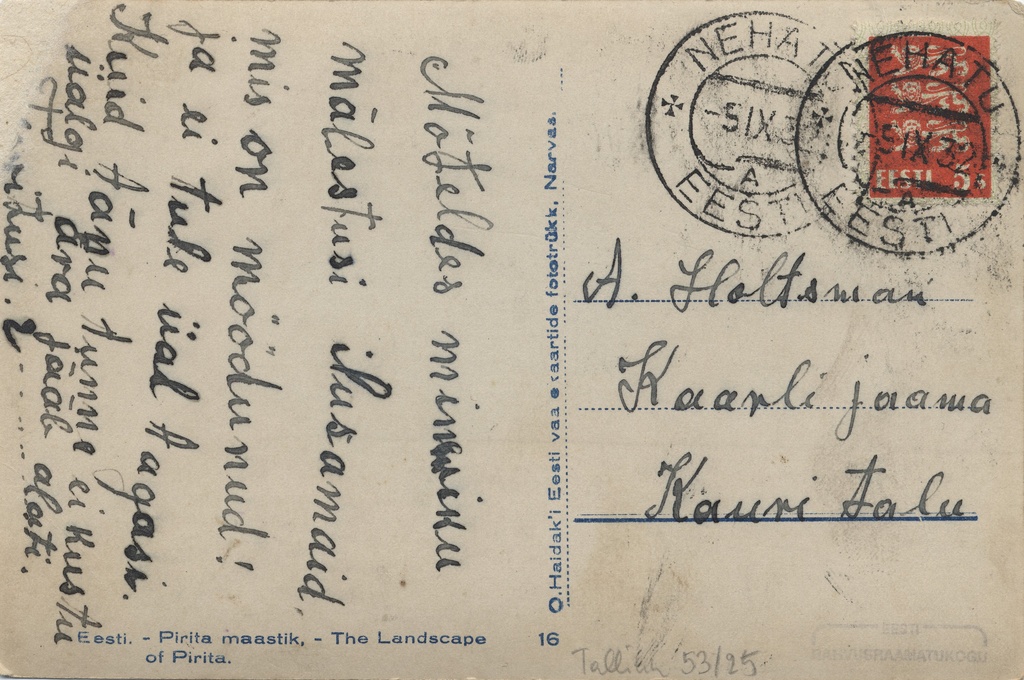 Mõteldes mineviku
mälestusi ilusamaid,
mis on möödunud!
ja ei tule iial tagasi.
Kuid tänu tunne ei kustu
iialgi ära jääb alati.
NEHATU
-5 IX 32
A
EESTI
NEHATU
-5 IX 32
A
EESTI
EESTI 5 s
A. Holtsman
Kaarli jaama
Kauri talu
O. Haidak'i Eesti vaa e kaartide fototrükk, Narvas.
Eesti. - Pirita maastik, - The Landscape
of Pirita.
16
Tallinn 53/25
EESTI
RAHVUSRAAMATUKOGU